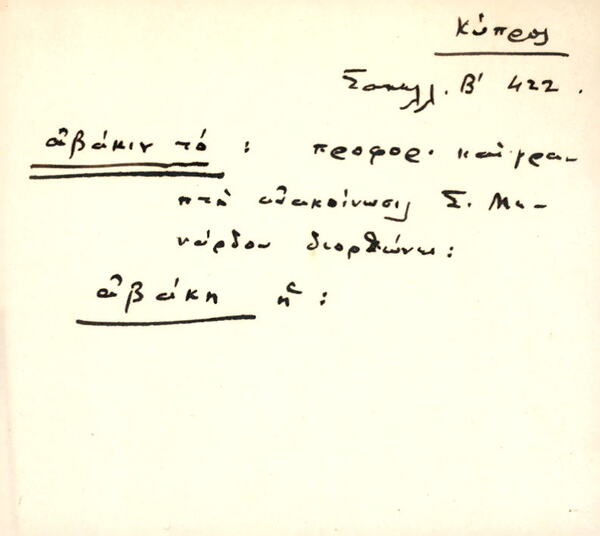 Κύπρος
Σακελλ. Β' 422.
ἀβάκιν τό : προφορ. καὶ γρα-
πτὴ ἀνακοίνωσις Σ. Με-
νάρδου διορθώνει :
ἀβάκη ἡ :